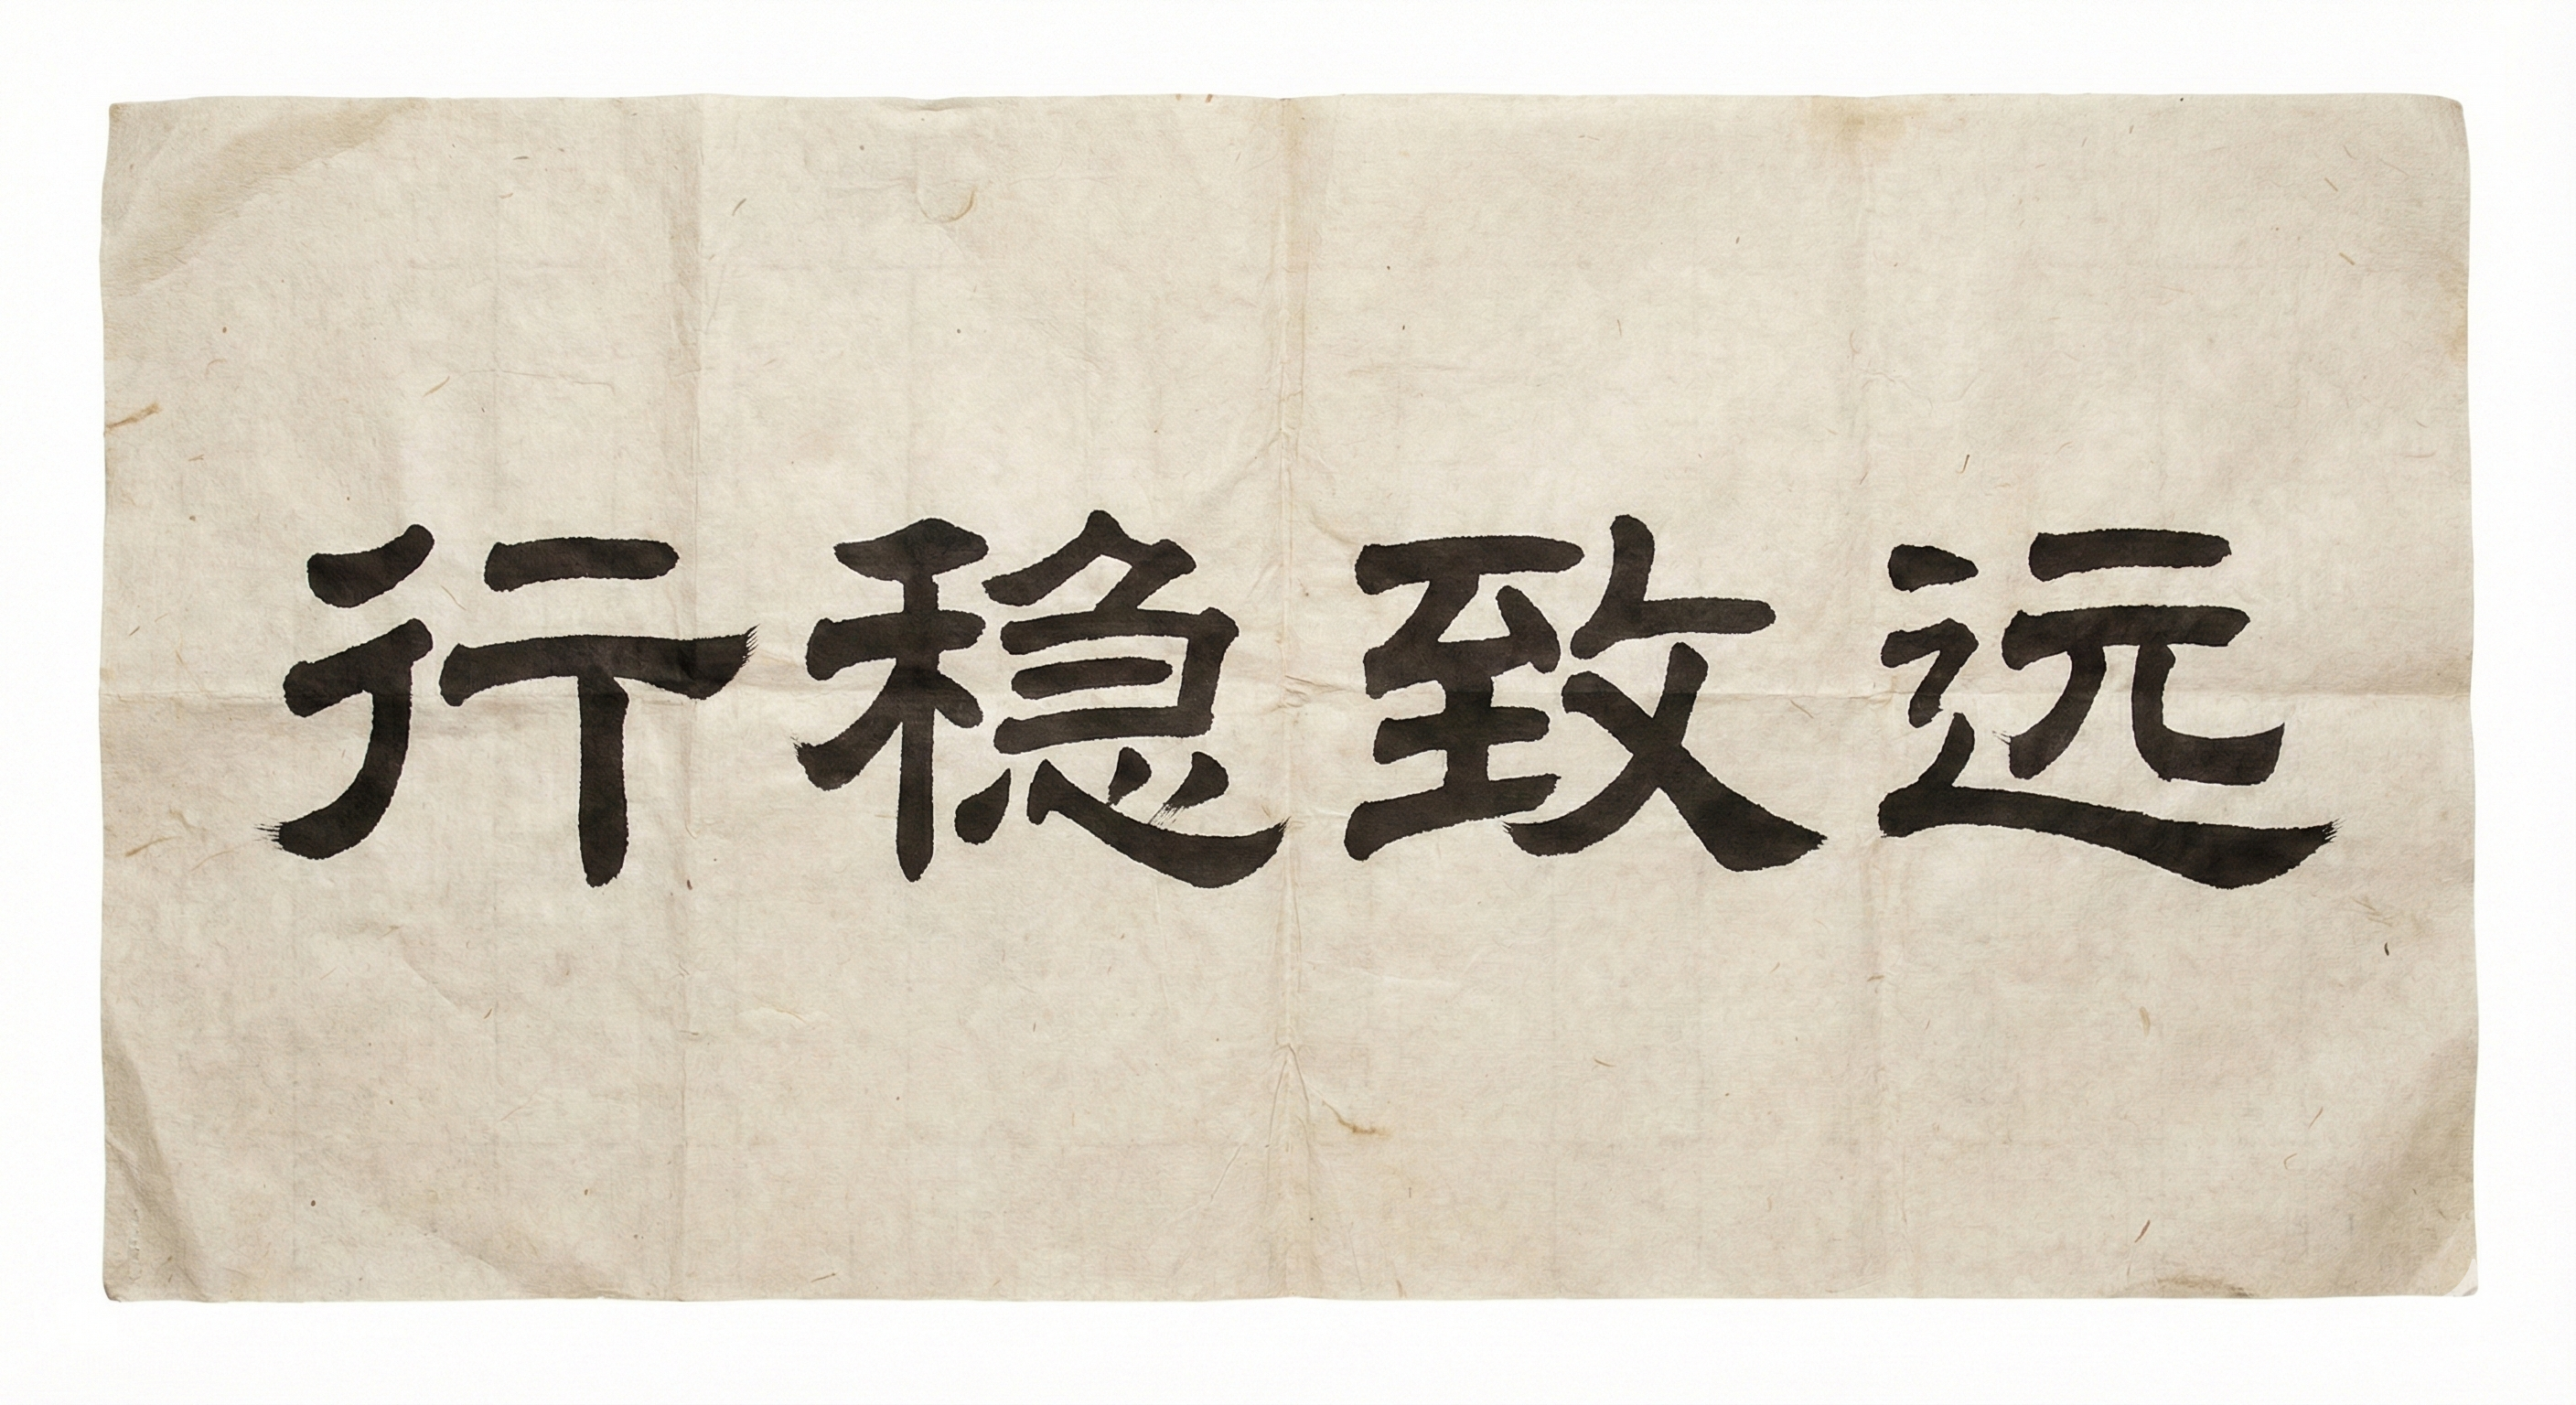 行稳致远